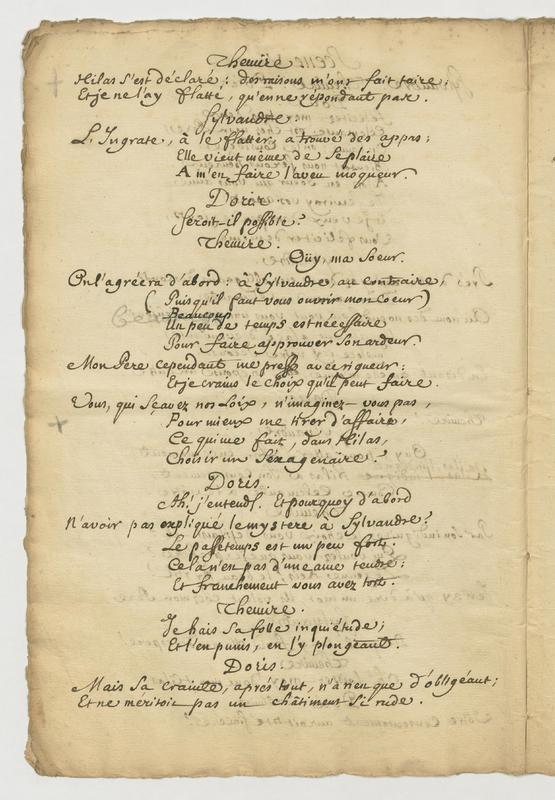 Themire
Hilas s'est déclaré: des raisons m'ont fait taire;
Et je ne l'ay flatté, qu'en ne répondant pas.
Sylvandre.
L'Ingrate, à le flatter, a trouvé des appas;
Elle vient même de se plaire
A m'en faire l'aveu moqueur.
Doris.
Seroit-il possible?
Themire.
Oüy, ma Soeur.
On l'agréera d'abord: à Sylvandre, au contraire,
(Puisqu'il faut vous ouvrir mon Coeur)
Beaucoup
Un peu de temps est nécessaire
Pour faire approuver son ardeur.
Mon Pere cependant me presse avec rigueur:
Et je crains le choix qu'il peut faire.
Vous, qui sçavez nos Loix, n'imaginez-vous pas,
Pour mieux me tirer d'affaire,
Ce qui me fait, dans Hilas,
Choisir un Séxagénaire?
Doris.
Ah! j'entends. Et pourquoy d'abord
N'avoir pas expliqué le mystere à Sylvandre?
Le passetemps est un peu fort.
Cela n'est pas d'une ame tendre:
Et franchement vous avez tort.
Themire.
Je hais sa folle inquiétude;
Et l'en punis, en l'y plongeant.
Doris.
Mais sa crainte, aprés tout, n'a rien que d'obligeant;
Et ne méritoit pas un châtiment si rude.